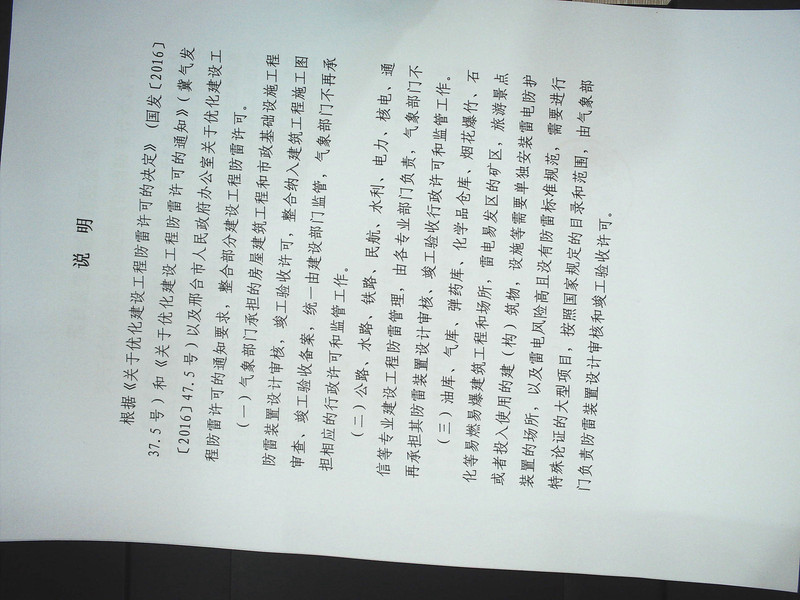 说 明
根据《关于优化建设工程防雷许可的决定》（国发〔2016〕
37.5号）和《关于优化建设工程防雷许可的通知》（冀气发
〔2016〕47.5号）以及邢台市人民政府办公室关于优化建设工
程防雷许可的通知要求，整合部分建设工程防雷许可。
（一）气象部门承担的房屋建筑工程和市政基础设施工程
防雷装置设计审核，竣工验收许可，整合纳入建筑工程施工图
审查、竣工验收备案，统一由建设部门监管，气象部门不再承
担相应的行政许可和监管工作。
（二）公路、水路、铁路、民航、水利、电力、核电、通
信等专业建设工程防雷管理，由各专业部门负责，气象部门不
再承担其防雷装置设计审核、竣工验收行政许可和监管工作。
（三）油库、气库、弹药库、化学品仓库、烟花爆竹、石
化等易燃易爆建筑工程和场所，雷电易发区的矿区，旅游景点
或者投入使用的建（构）筑物，设施等需要单独安装雷电防护
装置的场所，以及雷电风险高且没有防雷标准规范，需要进行
特殊论证的大型项目，按照国家规定的目录和范围，由气象部
门负责防雷装置设计审核和竣工验收许可。